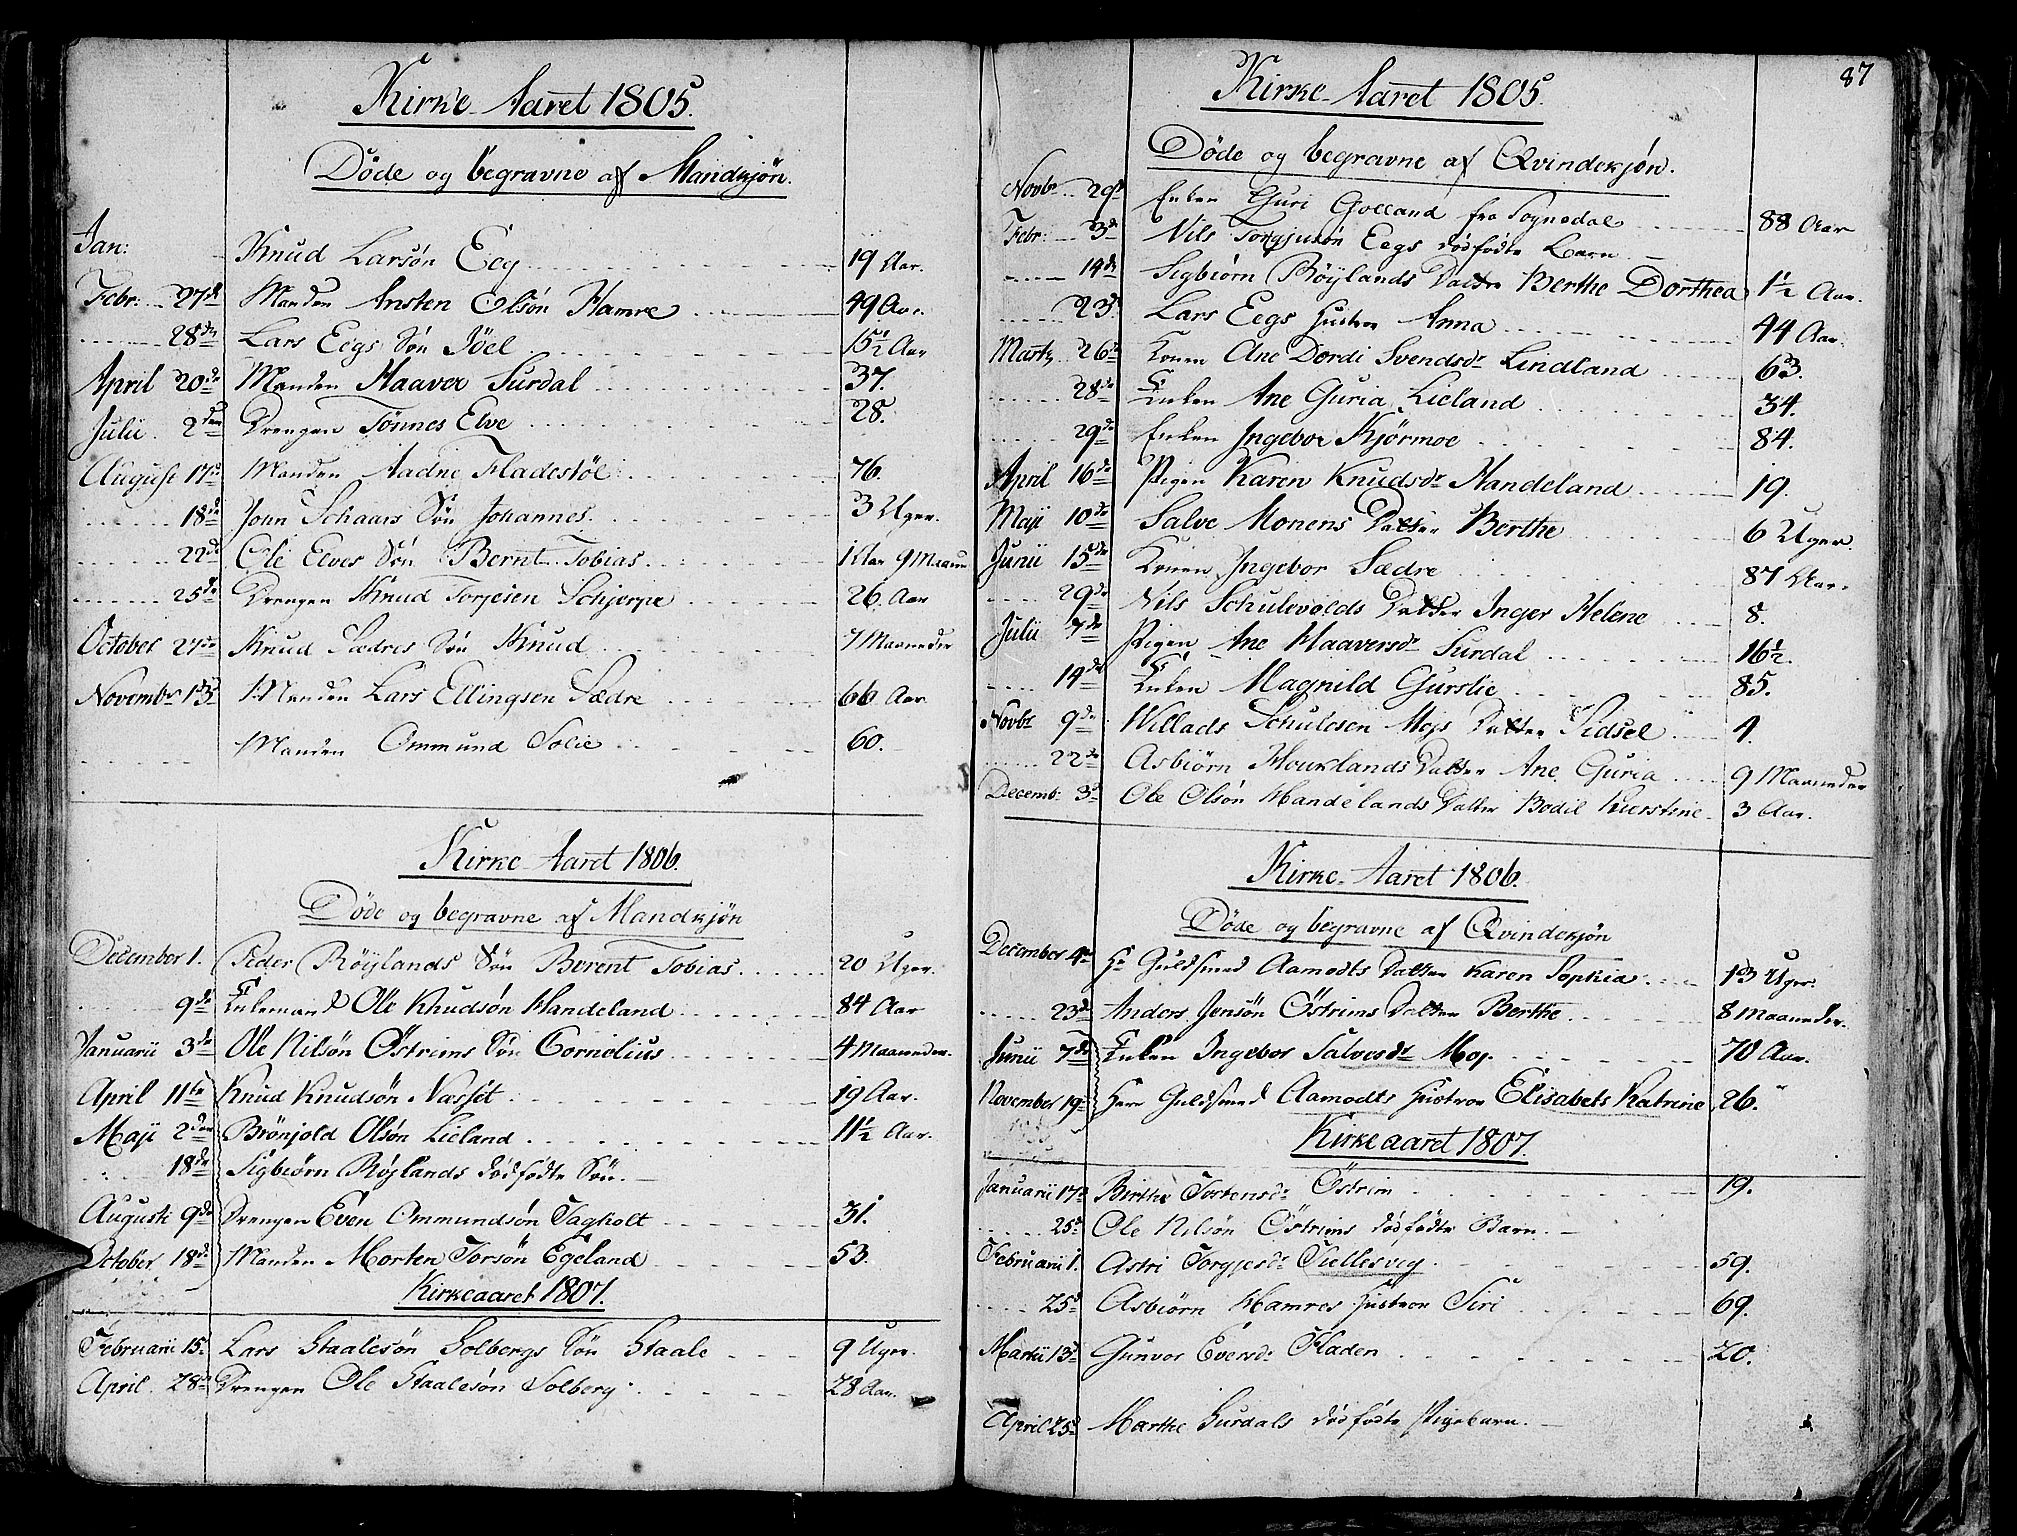 Kirke-Aaret 1805.
Döde og begravne af Mandkjön.
Jan: Knud Larsön Eeg 19 Aar.
Febr: 27de Manden Ansten Olsön Hamre 49 Aar.
28de Lars Eegs Sön Jöel 15½ Aar
April 20de Manden Haaver Surdal 37.
Julii 2den Drengen Tönnes Elve 28.
August 17de Manden Aadne Fladestöl 76.
18de John Schaars Sön Johannes. 3 Uger.
22de Ole Elves Sön Bernt Tobias. 1 Aar 9 Maan
25de Drengen Knud Torjesen Schjerpe 26. Aar
October 27de Knud Sædres Sön Knud 7 Maaneder
Novembr 13de Manden Lars Ellingsen Sædre 66 Aar.
Manden Ommund Solie 60.
Kirke-Aaret 1806.
Döde og begravne af Mandkjön
December 1. Peder Röylands Sön Berent Tobias. 20 Uger.
9de Enkemand Ole Knudsön Handeland 84 Aar
Januarii 3de Ole Nilsön Östrims Sön Cornelius 4 Maaneder.
April 11te Knud Knudsön Næsset 19 Aar.
Maji 2den Brönjold Olsön Lieland 11½ Aar.
18de Sigbiörn Röylands dödfödte Sön.
Augusti 9de Drengen Even Ommundsön Fagholt 31.
October 18de Manden Morten Torsön Egeland 53.
Kirkeaaret 1807.
Februarii 15de Lars Staalesön Solbergs Sön Staale 9 Uger.
April 28de Drengen Ole Staalesön Solberg 28 Aar.
87
Kirke-Aaret 1805.
Döde og begravne af Qvindekjön.
Novbr 29de Enken Guri Golland fra Sognedal 88 Aar
Febr: 3de Nils Torgjusön Eegs dödfödte Barn
14de Sigbiörn Röylands Datter Berthe Dorthea 1½ Aar.
23de Lars Eegs Hustroe Anna 44 Aar.
Marti 26de Konen Ane Dordi Svendsdr Lindland 63.
28de Enken Ane Guria Lieland 34.
29de Enken Ingebor Kjörmoe 84.
April 16de Pigen Karen Knudsdr Handeland 19.
Maji 10de Salve Monens Datter Berthe 6 Uger.
Junii 15de Konen Ingebor Sædre 87 Aar.
29de Nils Schulevolds Datter Inger Helene 8.
Julii 7de Pigen Ane Haaversdr Surdal 16½.
14de Enken Magnild Gurslie 85.
Novbr 9de Willads Schulesen Mojs Datter Sidsel 4.
22de Asbiörn Houklands Datter Ane Guria 9 Maaneder
Decembr 3de Ole Olsön Handelands Datter Bodil Kierstine 3 Aar.
Kirke-Aaret 1806.
Döde og begravne af Qvindekjön
December 4de Hr Guldsmed Aamodts Datter Karen Sophia 13 Uger.
23de Anders Jensön Östrims Datter Berthe 8 Maaneder.
Junii 7de Enken Ingebor Salvesdr Moj 70 Aar.
November 19de Herr Guldsmed Aamodts Hustroe Elisabets Katrine 26.
Kirkeaaret 1807.
Januarii 17de Birthe Tostensdr Östrim 19.
25de Ole Nilsön Östrims dödfödte Barn.
Februarii 1. Astri Torgjesdr Tiellesvig 59.
25de Asbiörn Hamres Hustroe Siri 69.
Martii 13de Gunvor Eversdr Fladen 20.
April 25de Marthe Surdals dödfödte Pigebarn.